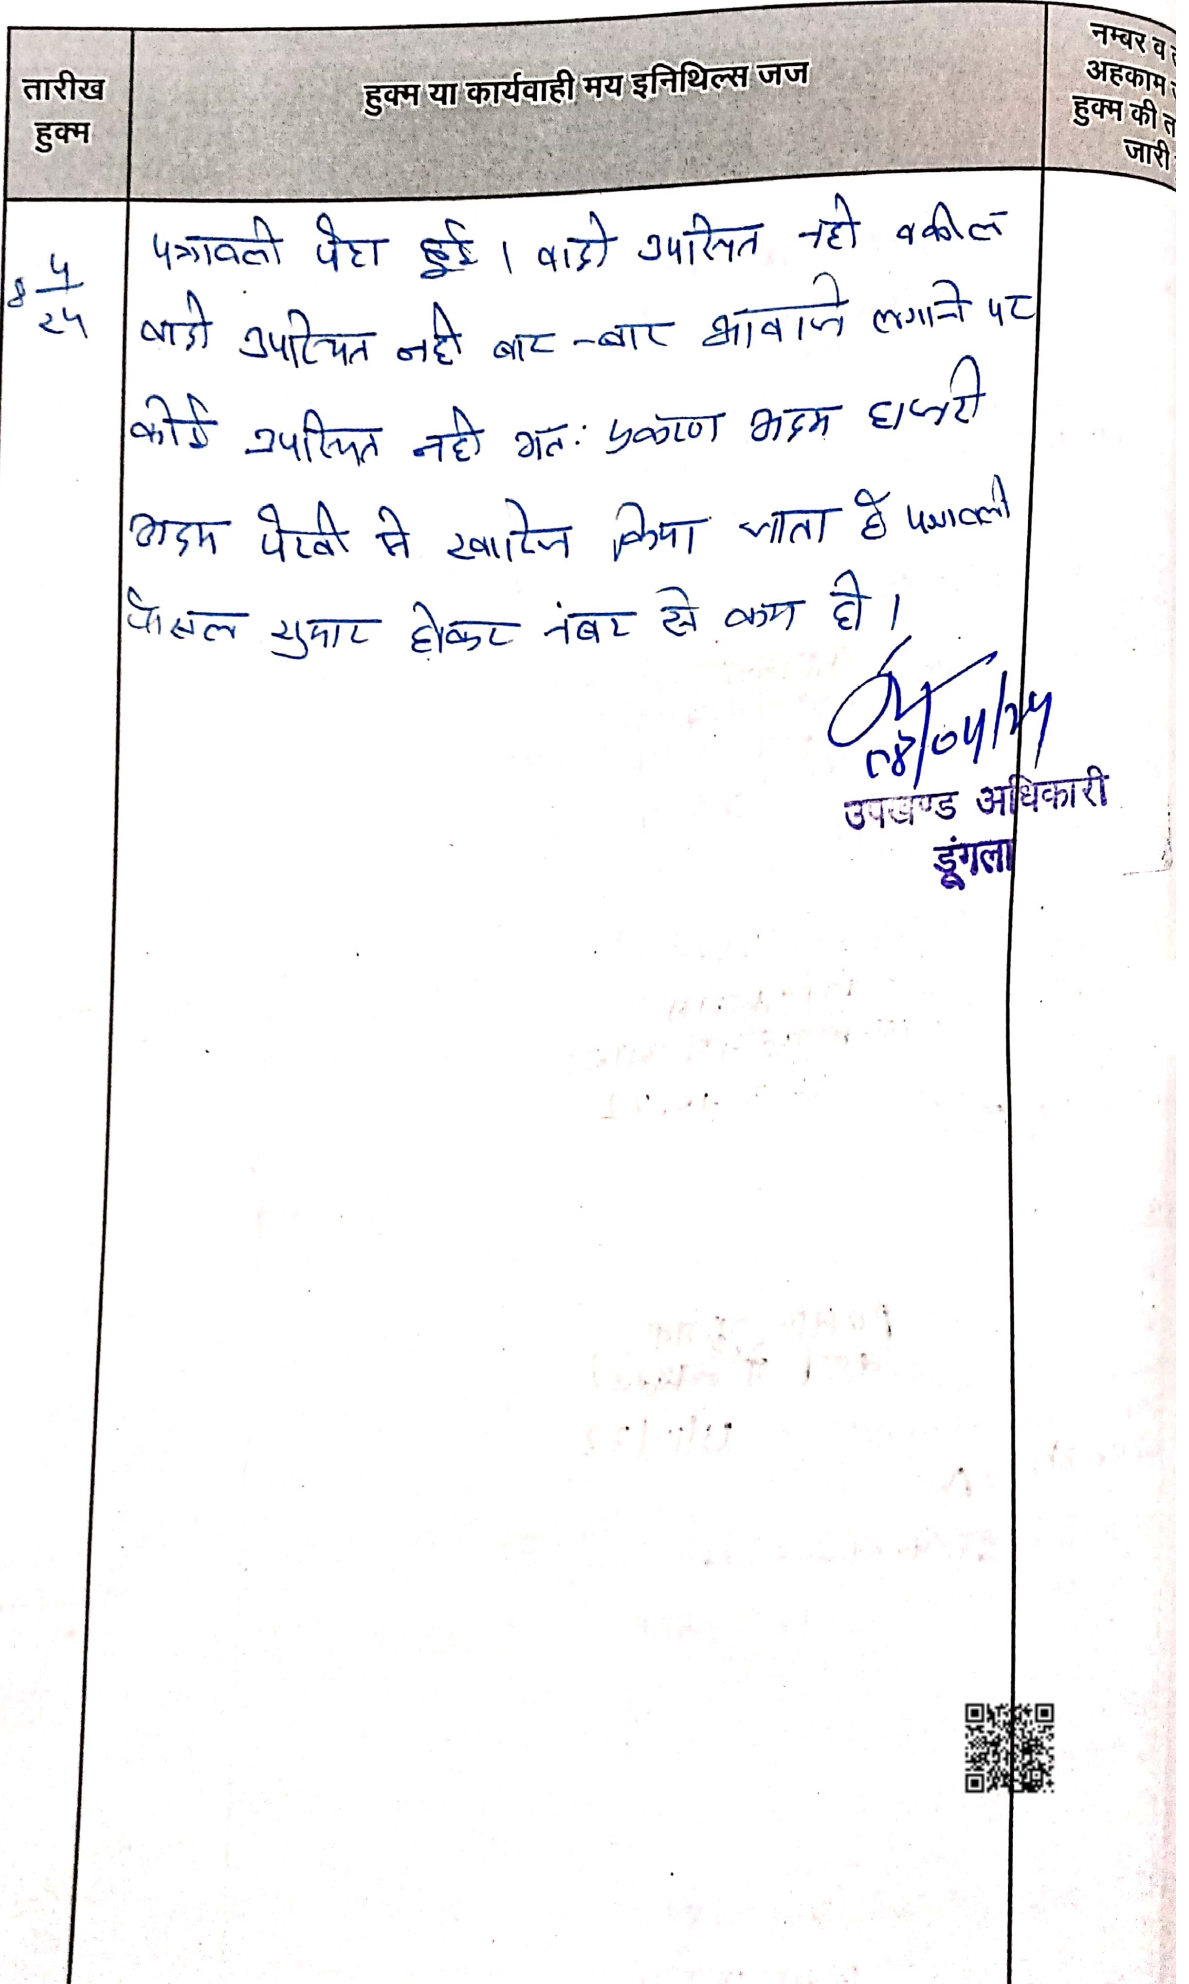 तारीख
हुक्म
हुक्म या कार्यवाही मय इनिथिल्स जज
नम्बर व
अहकाम
हुक्म की त
जारी
8 4/24
पत्रावली पेश हुई । वादी उपस्थित नही वकील
वादी उपस्थित नही बार-बार आवाजे लगाने पर
कोई उपस्थित नही अतः प्रकरण अदम हाजरी
अदम पैरवी मे खारिज किया जाता है पत्रावली
फैसल शुमार होकर नंबर से कम हो ।
08/04/24
उपखण्ड अधिकारी
डूंगला